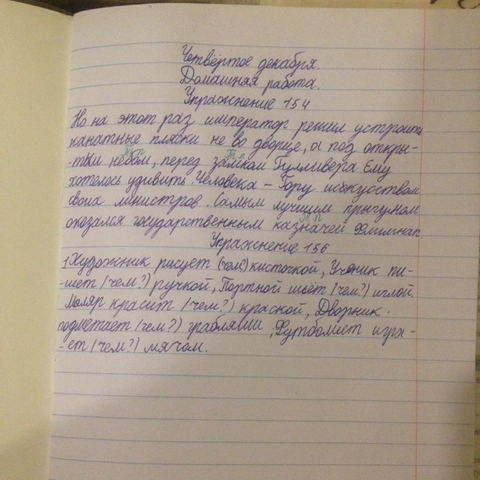 Четвёртое декабря.
Домашняя работа.
Упражнение 154
Но на этот раз император решил устроить
канатные пляски не во дворце, а под откры-
-тым небом, перед замком Гулливера Ему
хотелось удивить Человека - Гору искуством
своих министров. Самым лучшим прыгуном
оказался государственным казначей Флимнап.
Упражнение 156
1Художник рисует (чем?) кисточкой, Ученик пи-
-шет (чем?) ручкой, Портной шьёт (чем?) иглой.
Маляр красит (чем?) краской, Дворник
подметает (чем?) граблями, Футболист игра-
-ет (чем?) мячом.